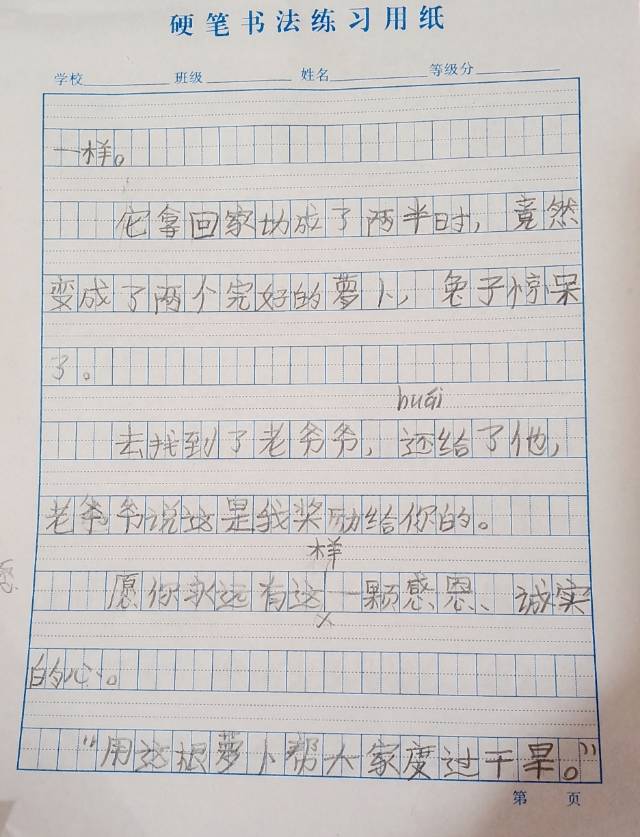 硬笔书法练习用纸
学校 班级 姓名 等级分
一样。
它拿回家切成了两半时，竟然
变成了两个完好的萝卜，兔子惊呆
了。
huái
去找到了老爷爷，还给了他，
老爷爷说这是我奖励给你的。
样
愿你永远有这一颗感恩、诚实
的心。
“用这根萝卜帮大家度过干旱。”
第 页